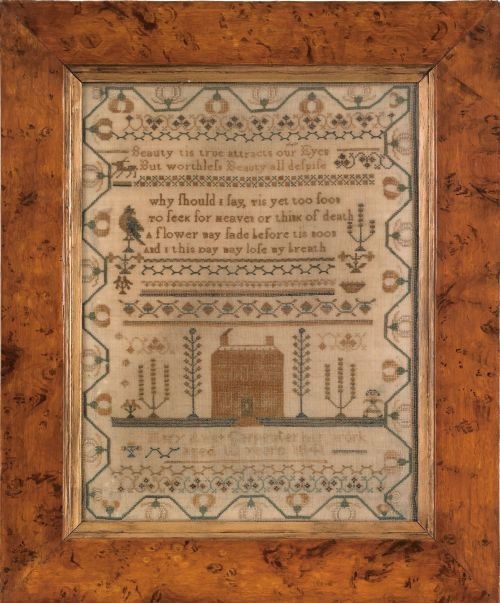 Beauty tis true attracts our Eyes
But worthleſs Beauty all despise
why ſhould I ſay, tis yet too ſoon
To ſeek for Heaven or think of death
A flower may fade before tis noon
And I this Day may loſe my breath
Mary Carpenter her work
aged